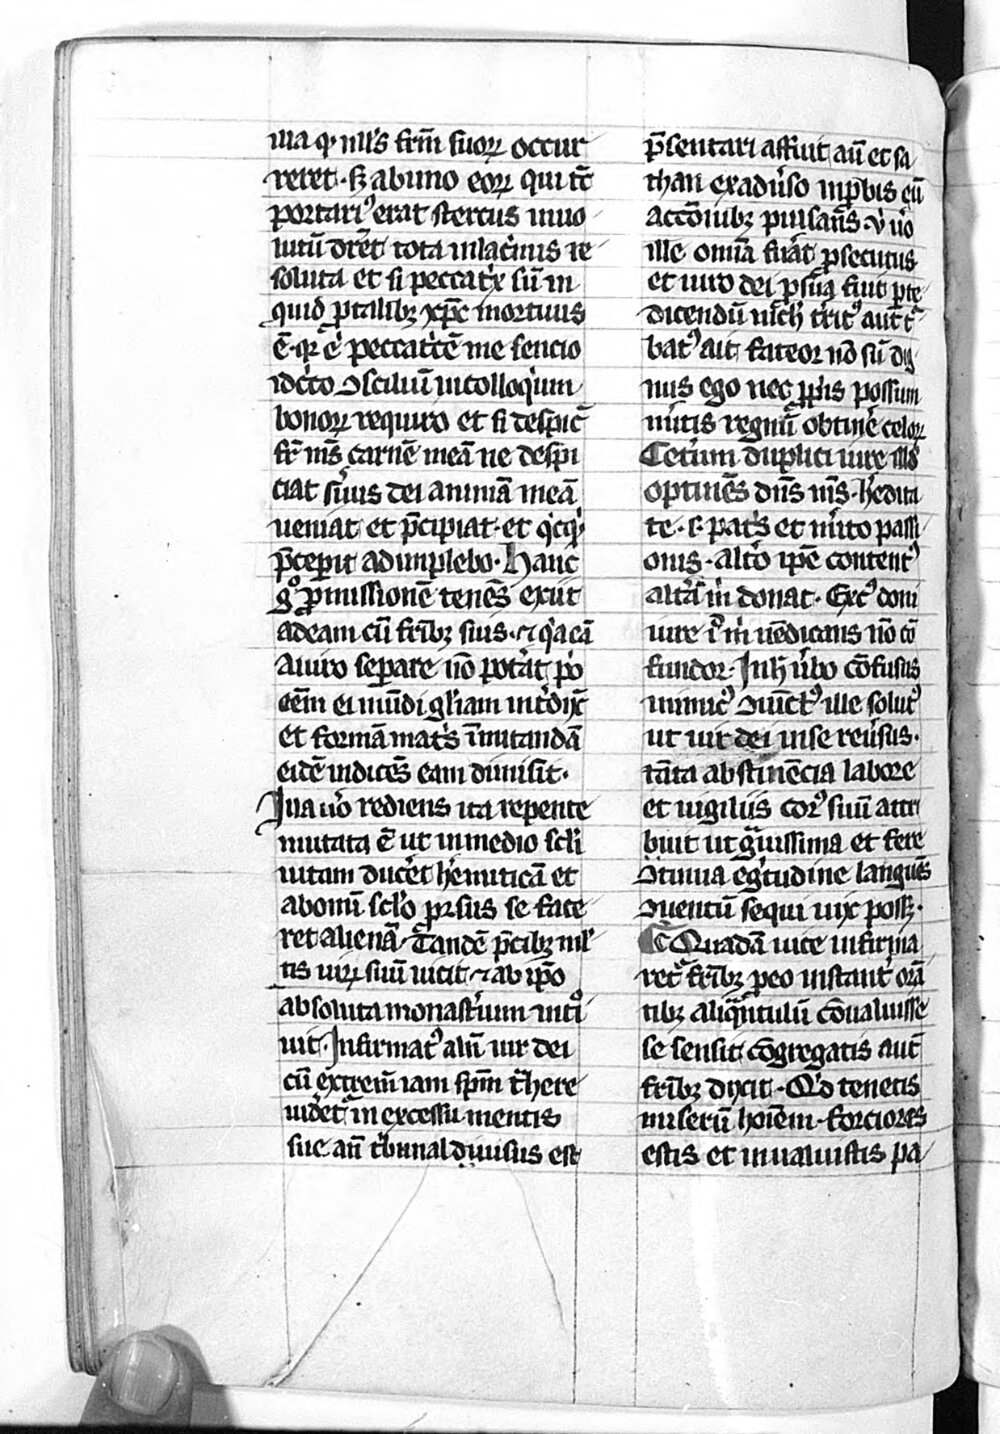 illa q̛ nll's frm̄ suoꝝ occur
reret · sꝫ ab uno eoꝝ qui tc̄
portariꝰ erat stercus inuo
lutū dr̄et tota in lac̓mis re
soluta et si peccat̓x sū in
quid p̱ talibꝫ xp̄c mortuus
ē · q̛ꝛ ḡ peccat̓cē me sencio
idc̓to ꝯsciliū in colloq̓um
bonoꝝ requiro et si despic̄
fr̄ m̄s carnē meā ne despi
ciat s̓uus dei animā meā
ueniat et p̄cipiat · et q̓cq̓
p̄ceperit adimplebo · Hanc
gͦ ꝓmissionē tenēs exiit
ad eam cū frībꝫ suis · ⁊ q̓a eā
a uiro sep̱are nō pot̓at p̓o
eēm ei mūdi gl̄iam int̓dix̄
et formā mat̓s imitandā
eidē indicēs eam dimisit ·
Illa u̓o rediens ita repente
mutata ē ut in medio scl̄i
uitam ducēt h̓emiticā et
ab omī scl̓o ꝓrsus se face
ret alienā · Tandē p̄cibꝫ ml̓
tis uiꝝ suū uicit ⁊ ab ip̄o
absoluta monast̓ium int̓
uit · Infirmatꝰ alīn uir dei
cū extrem̄ iam spm̄ t̓here
uidet̓ in excessu mentis
sue an̄ t̓bunal diuisus est
p̄sentari affuit aū et sa
than ex adu̓so inp̄bis eū
acc̄oniībꝫ pulsan̄s · v̓ u̓o
ille omīa fu̓at p̱secutus
et uiro dei p̱ sua fuit p̱te
dicendū nich̄ t̓ritꝰ aut t̓
batꝰ ait fateor nō sū dig
nus ego nec ꝓp̓is possum
m̓itis regnū obtin̓e celoꝝ
Cet̓um duplici iure illd̄
optinēs dn̄s m̄s · h̓edita
te · s · pat̓s et m̓ito passi
onis · alt̓o ip̄e contentꝰ
alt̓a m̓ donat · Exꝰ doni
iure iͦ m̓ uēdicans nō cō
fundor · In h̓ u̓bo cōfusus
inimicꝰ ꝯuictꝰ ille solutꝰ
ut uir dei in se reu̓sus ·
tāta abstinēcia labore
et uigiliis corꝰ suū attri
biuit ut g̓uissima et fere
ꝯtinua eg̓tudine languēs
ꝯuentū sequi uix possꝫ ·
Quadā uice infirma
ret̓ frībꝫ p̱ eo instant̓ orā
tibꝫ aliq̓ntulū cōualuisse
se sensit cōgregatis aut̄
frībꝫ dixit · Qͥd tenetis
miserū hoīem · forciores
estis et inualuistis pa